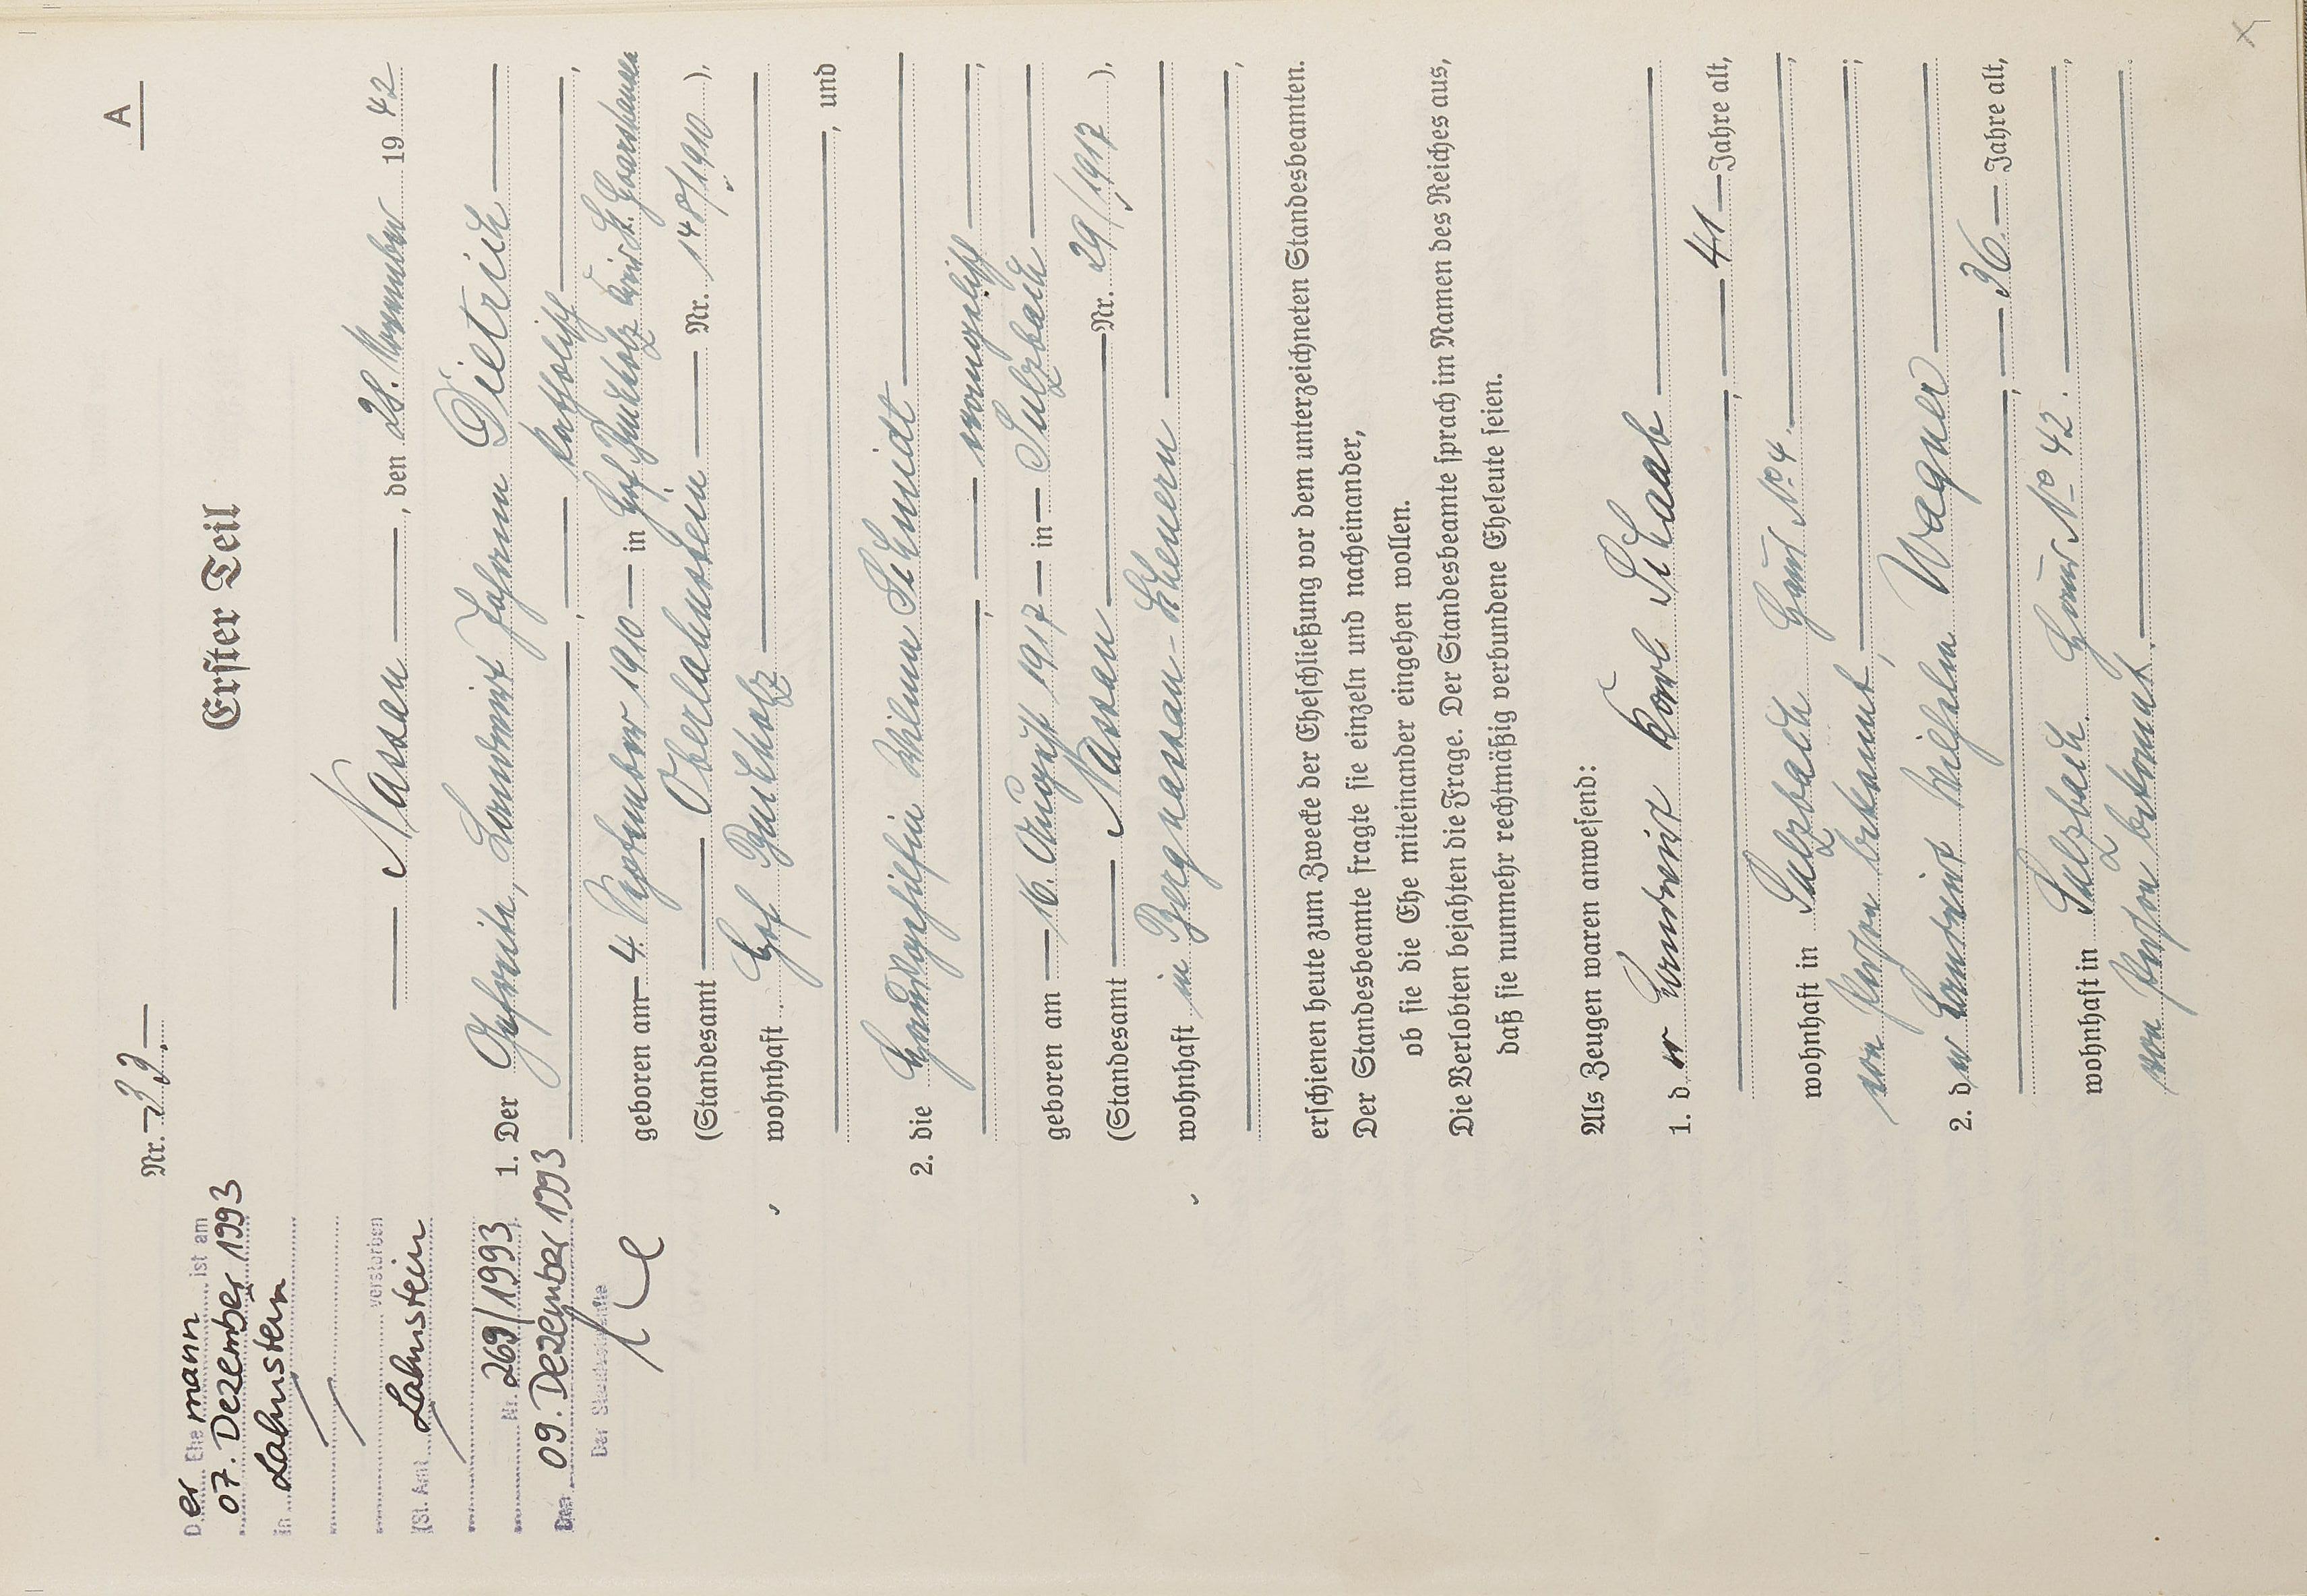 A
Nr. 33.
Erster Teil
Nassau, den 28. November 1942
1. Der Gefreite, Landwirt Johann Dietrich
, katholisch,
geboren am 4. September 1910 in Hof Buchholz Kreis St. Goarshausen
(Standesamt Oberlahnstein Nr. 148/1910),
wohnhaft Hof Buchholz
, und
2. die Haushaltgehilfin Wilma Schmidt
, evangelisch,
geboren am 16. August 1917 in Sulzbach
(Standesamt Nassau Nr. 29/1917),
wohnhaft in Bergnassau-Scheuern
,
erschienen heute zum Zwecke der Eheschließung vor dem unterzeichneten Standesbeamten.
Der Standesbeamte fragte sie einzeln und nacheinander,
ob sie die Ehe miteinander eingehen wollen.
Die Verlobten bejahten die Frage. Der Standesbeamte sprach im Namen des Reiches aus,
daß sie nunmehr rechtmäßig verbundene Eheleute seien.
Als Zeugen waren anwesend:
1. der Landwirt Karl Schaab
, 41 Jahre alt,
wohnhaft in Sulzbach Haus No 4.,
von Person bekannt,;
2. der Landwirt Wilhelm Wagner
, 36 Jahre alt,
wohnhaft in Sulzbach Haus No 42.,
von Person bekannt.
Der Ehemann ist am
07. Dezember 1993
in Lahnstein
verstorben
(St. Amt Lahnstein
Nr. 269/1993).
Den 09. Dezember 1993
Der Standesbeamte